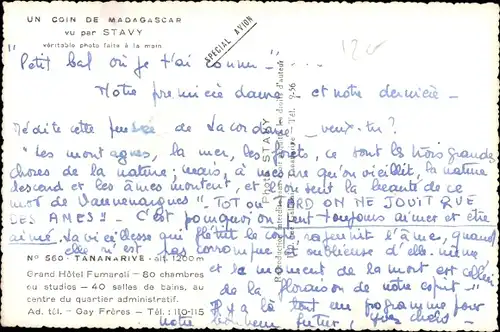 UN COIN DE MADAGASCAR
vu par STAVY
véritable photo faite à la main
SPECIAL AVION
"Petit bal où je t'ai connu - "
Notre première danse et notre dernière -
Médite cette pensée de Lacordaire, veux-tu?
"Les montagnes, la mer, les forêts, ce sont les trois grandes
choses de la nature; mais, à mesure qu'on vieillit, la nature
descend et les âmes montent, et l'on sent la beauté de ce
mot de Vauvenargues "TOT OU TARD ON NE JOUIT QUE
DES AMES" - C'est pourquoi on peut toujours aimer et être
aimé. La vieillesse qui flétrit le corps rajeunit l'âme, quand
elle n'est pas corrompue et oublieuse d'elle-même
N° 560 - TANANARIVE - alt. 1200 m
et le moment de la mort est celui
Grand Hôtel Fumaroli - 80 chambres
de la floraison de notre esprit".
ou studios - 40 salles de bains, au
centre du quartier administratif.
Il y a là tout un programme pour
Ad. tél. - Gay Frères - Tél. : 110-115
notre bonheur futur,
Photo STAVY